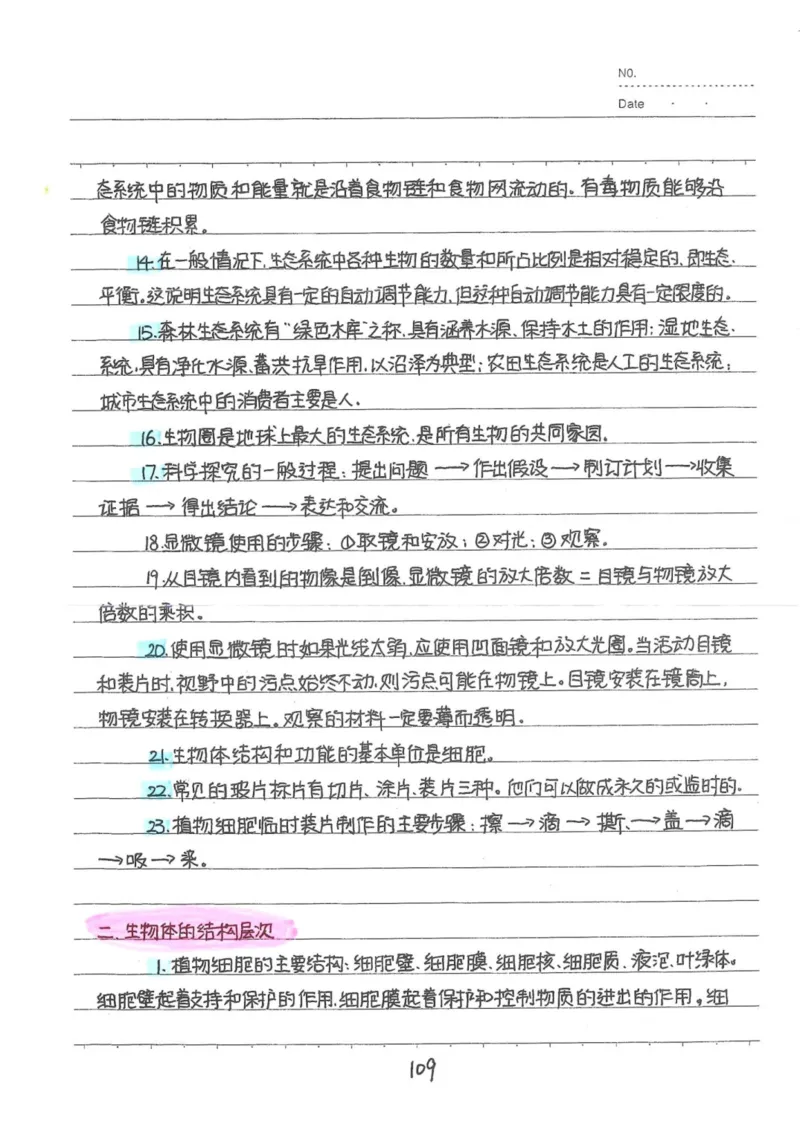 NO.
Date
态系统中的物质和能量就是沿着食物链和食物网流动的。有毒物质能够沿
食物链积累。
14.在一般情况下,生态系统中各种生物的数量和所占比例是相对稳定的,即生态.
平衡。这说明生态系统具有一定的自动调节能力,但这种自动调节能力具有一定限度的。
15.森林生态系统有“绿色水库”之称,具有涵养水源、保持水土的作用;湿地生态.
系统,具有净化水源、蓄洪抗旱作用,以沼泽为典型;农田生态系统是人工的生态系统;
城市生态系统中的消费者主要是人.
16.生物圈是地球上最大的生态系统,是所有生物的共同家园。
17.科学探究的一般过程:提出问题→作出假设→制订计划→收集
证据→得出结论→表达和交流。
18.显微镜使用的步骤:①取镜和安放;②对光;③观察.
19.从目镜内看到的物像是倒像,显微镜的放大倍数=目镜与物镜放大
倍数的乘积。
20.使用显微镜时如果光线太弱,应使用凹面镜和放大光圈。当活动目镜
和装片时,视野中的污点始终不动,则污点可能在物镜上。目镜安装在镜筒上,
物镜安装在转换器上。观察的材料一定要薄而透明.
21.生物体结构和功能的基本单位是细胞。
22.常见的玻片标片有切片、涂片、装片三种。他们可以做成永久的或临时的.
23.植物细胞临时装片制作的主要步骤:擦→滴→撕、→盖→滴
→吸→来。
二.生物体的结构层次
1.植物细胞的主要结构:细胞壁、细胞膜、细胞核、细胞质、液泡、叶绿体。
细胞壁起着支持和保护的作用,细胞膜起着保护和控制物质的进出的作用,细
109